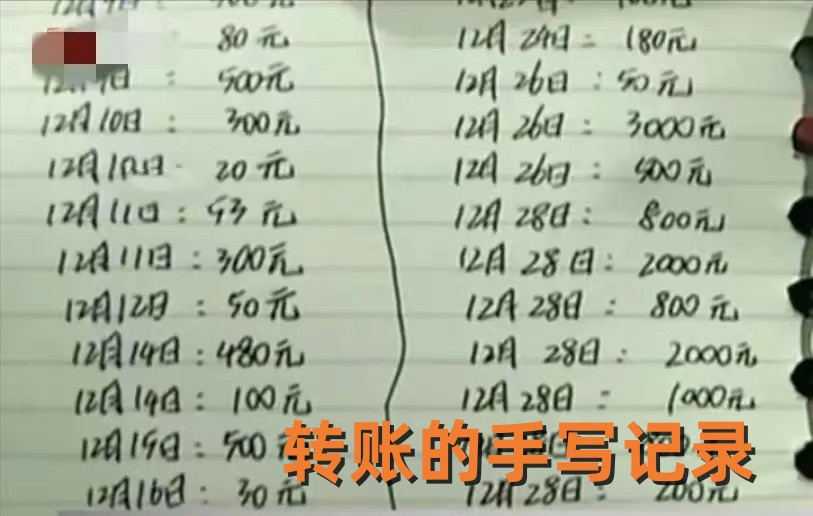 80元
500元
12月10日: 300元
20元
12月11日: 93元
12月11日: 300元
12月12日: 50元
12月14日: 480元
12月14日: 100元
12月15日: 500
12月16日: 30元
12月24日: 180元
12月26日: 50元
12月26日: 3000元
12月26日: 500元
12月28日: 800元
12月28日: 2000元
12月28日: 800元
12月28日: 2000元
12月28日: 1000元
12月28日: 200元
转账的手写记录